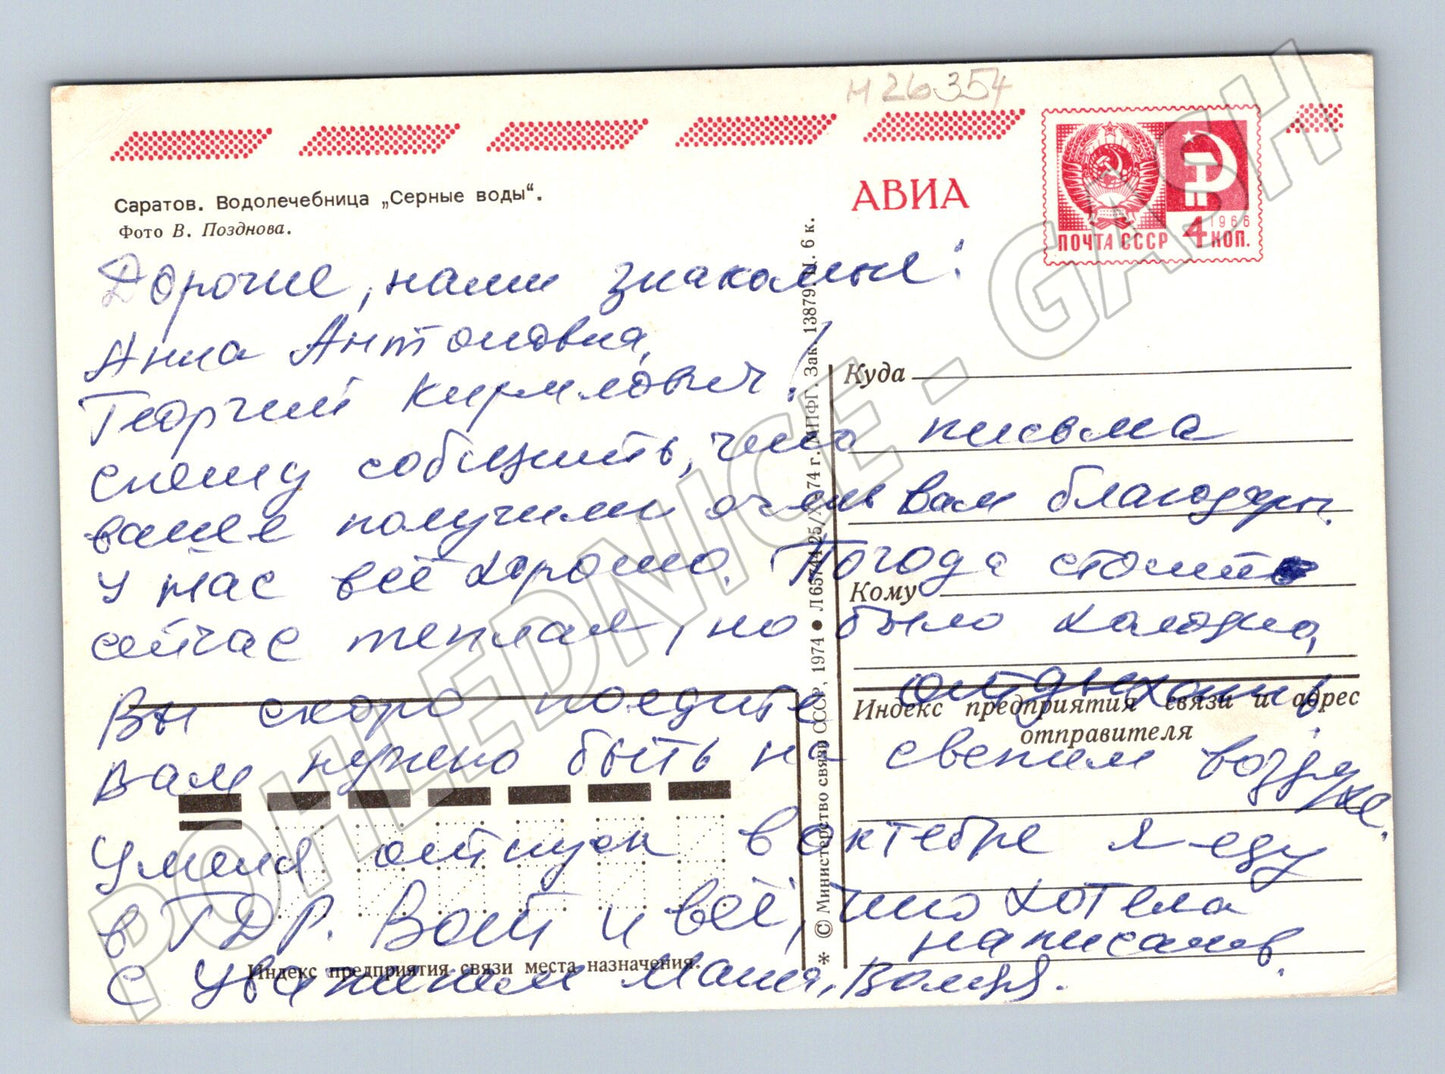 М 26354
Саратов. Водолечебница „Серные воды“.
Фото В. Позднова.
АВИА
1966
ПОЧТА СССР 4 КОП.
Дорогие, наши знакомые!
Анна Антоновна,
Георгий Кирилович!
Спешу собщить, что письма
ваше получили очень вам благодарны.
У нас всё хорошо. Погода стоит
сейчас теплая, но было холодно,
Вы скоро поедите отдыхать,
вам нужно быть на свежем воздухе.
У меня отпуск в октебре я еду
в ГДР. Вот и всё, что хотела
написать.
С уважением Маша, Володя.
Куда
Кому
Индекс предприятия связи и адрес
отправителя
Индекс предприятия связи места назначения.
* © Министерство связи СССР, 1974 ● Л65744 25/X-74 г. МПФГ. Зак. 13879 Ц. 6 к.
POHLEDNICE - GASH